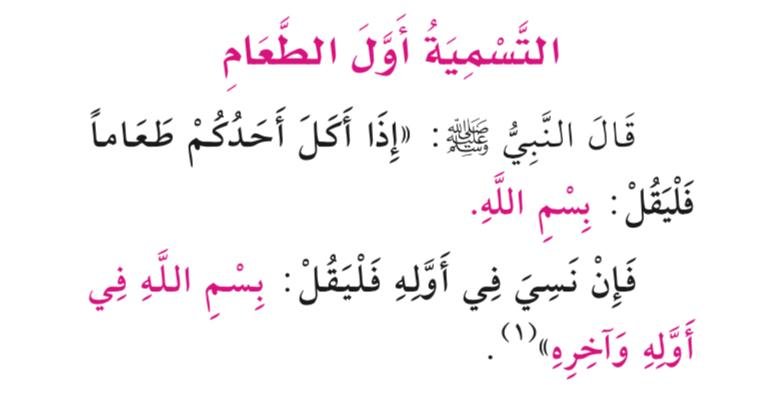 التَّسْمِيَةُ أَوَّلَ الطَّعَامِ
قَالَ النَّبِيُّ ﷺ: «إِذَا أَكَلَ أَحَدُكُمْ طَعَاماً
فَلْيَقُلْ: بِسْمِ اللَّهِ.
فَإِنْ نَسِيَ فِي أَوَّلِهِ فَلْيَقُلْ: بِسْمِ اللَّهِ فِي
أَوَّلِهِ وَآخِرِهِ»(١).